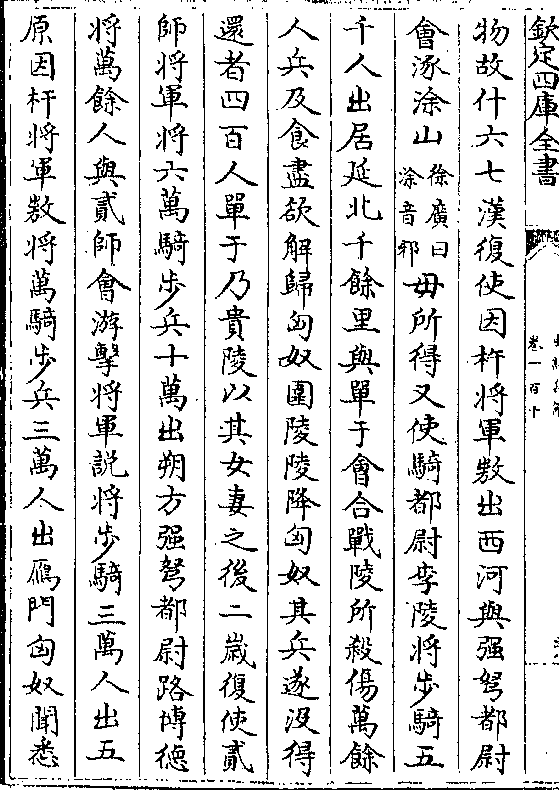 欽定四庫全書
卷一百十
物故什六七漢復使因杅將軍敖出西河與强弩都尉
會涿涂山徐廣曰涂音邪毋所得又使騎都尉李陵將步騎五
千人出居延北千餘里與單于會合戰陵所殺傷萬餘
人兵及食盡欲解歸匈奴圍陵陵降匈奴其兵遂没得
還者四百人單于乃貴陵以其女妻之後二歲復使貳
師將軍將六萬騎步兵十萬出朔方强弩都尉路博德
將萬餘人與貳師會游擊將軍説將步騎三萬人出五
原因杅將軍敖將萬騎步兵三萬人出鴈門匈奴聞悉